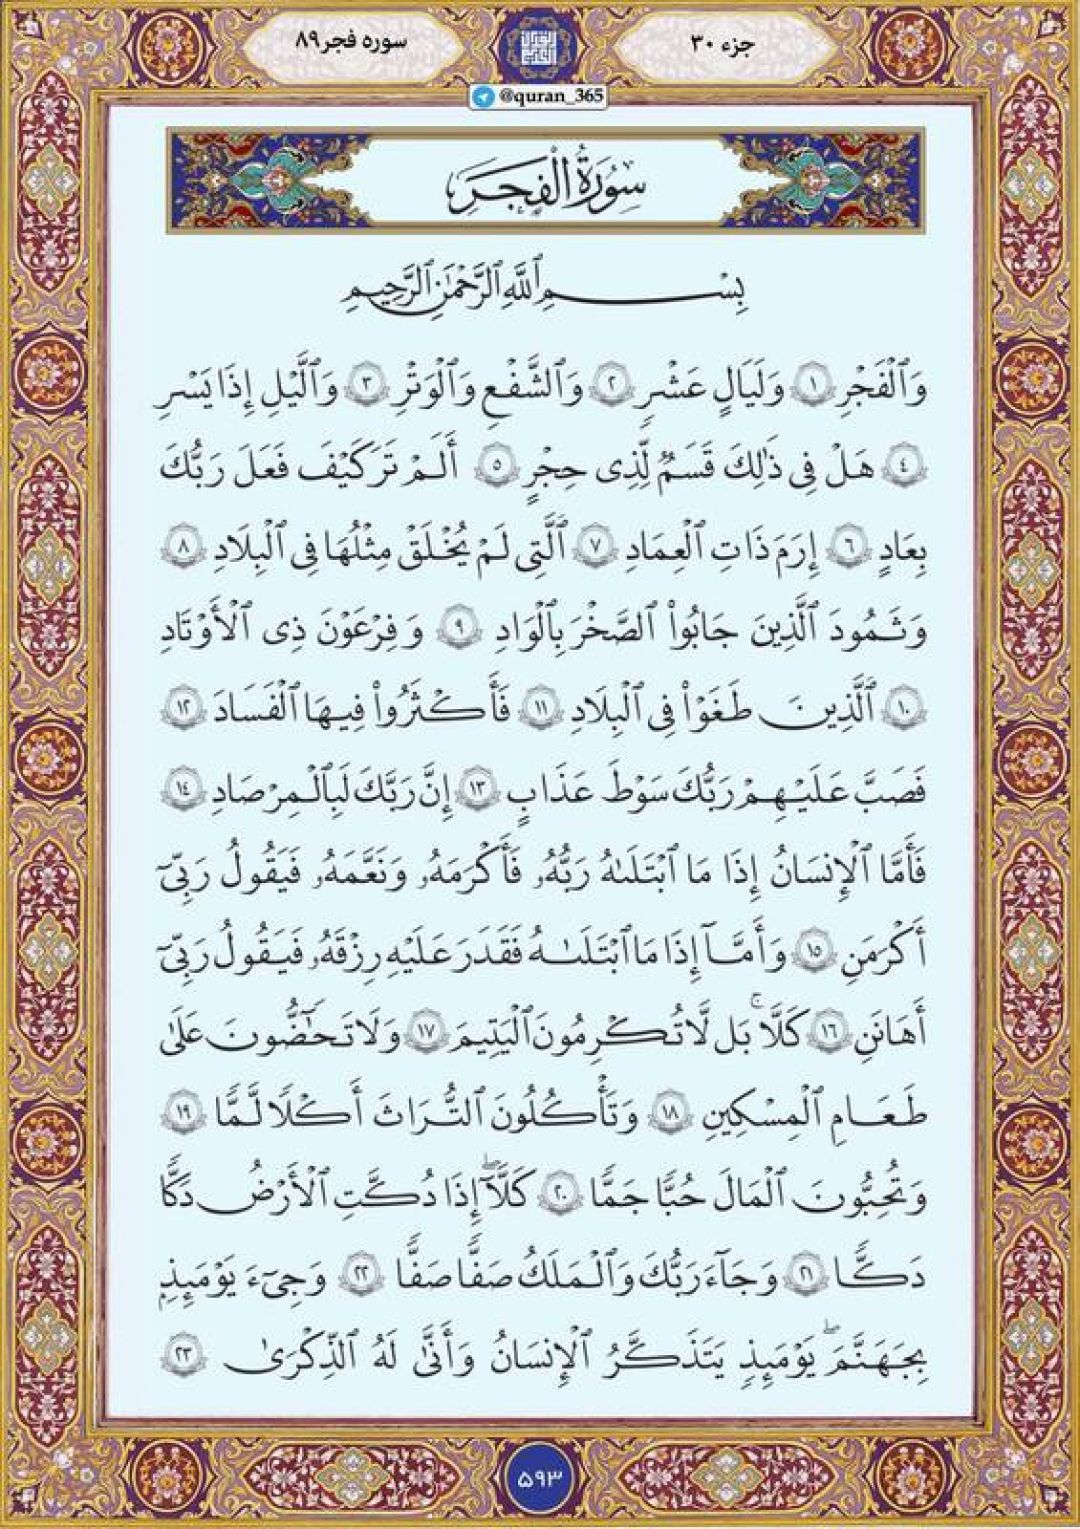 جزء ۳۰
سوره فجر۸۹
@quran_365
سُورَةُ الْفَجْرِ
بِسْمِ ٱللَّهِ ٱلرَّحْمَٰنِ ٱلرَّحِيمِ
وَٱلْفَجْرِ ۝١ وَلَيَالٍ عَشْرٍ ۝٢ وَٱلشَّفْعِ وَٱلْوَتْرِ ۝٣ وَٱلَّيْلِ إِذَا يَسْرِ
۝٤ هَلْ فِى ذَٰلِكَ قَسَمٌ لِّذِى حِجْرٍ ۝٥ أَلَمْ تَرَ كَيْفَ فَعَلَ رَبُّكَ
بِعَادٍ ۝٦ إِرَمَ ذَاتِ ٱلْعِمَادِ ۝٧ ٱلَّتِى لَمْ يُخْلَقْ مِثْلُهَا فِى ٱلْبِلَادِ ۝٨
وَثَمُودَ ٱلَّذِينَ جَابُوا۟ ٱلصَّخْرَ بِٱلْوَادِ ۝٩ وَفِرْعَوْنَ ذِى ٱلْأَوْتَادِ
۝١٠ ٱلَّذِينَ طَغَوْا۟ فِى ٱلْبِلَادِ ۝١١ فَأَكْثَرُوا۟ فِيهَا ٱلْفَسَادَ ۝١٢
فَصَبَّ عَلَيْهِمْ رَبُّكَ سَوْطَ عَذَابٍ ۝١٣ إِنَّ رَبَّكَ لَبِٱلْمِرْصَادِ ۝١٤
فَأَمَّا ٱلْإِنسَانُ إِذَا مَا ٱبْتَلَىٰهُ رَبُّهُۥ فَأَكْرَمَهُۥ وَنَعَّمَهُۥ فَيَقُولُ رَبِّىٓ
أَكْرَمَنِ ۝١٥ وَأَمَّآ إِذَا مَا ٱبْتَلَىٰهُ فَقَدَرَ عَلَيْهِ رِزْقَهُۥ فَيَقُولُ رَبِّىٓ
أَهَانَنِ ۝١٦ كَلَّا ۖ بَل لَّا تُكْرِمُونَ ٱلْيَتِيمَ ۝١٧ وَلَا تَحَٰٓضُّونَ عَلَىٰ
طَعَامِ ٱلْمِسْكِينِ ۝١٨ وَتَأْكُلُونَ ٱلتُّرَاثَ أَكْلًا لَّمًّا ۝١٩
وَتُحِبُّونَ ٱلْمَالَ حُبًّا جَمًّا ۝٢٠ كَلَّآ ۖ إِذَا دُكَّتِ ٱلْأَرْضُ دَكًّا
دَكًّا ۝٢١ وَجَآءَ رَبُّكَ وَٱلْمَلَكُ صَفًّا صَفًّا ۝٢٢ وَجِىٓءَ يَوْمَئِذٍ
بِجَهَنَّمَ ۖ يَوْمَئِذٍ يَتَذَكَّرُ ٱلْإِنسَانُ وَأَنَّىٰ لَهُ ٱلذِّكْرَىٰ ۝٢٣
۵۹۳